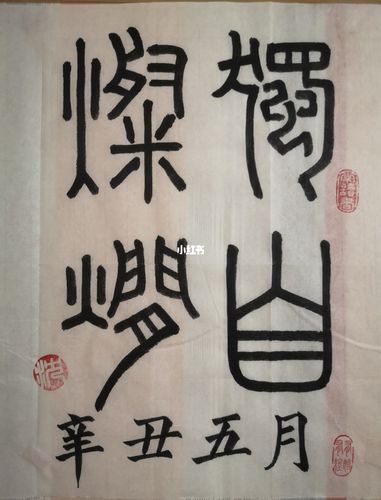 獨自
燦爛
辛丑五月
小红书